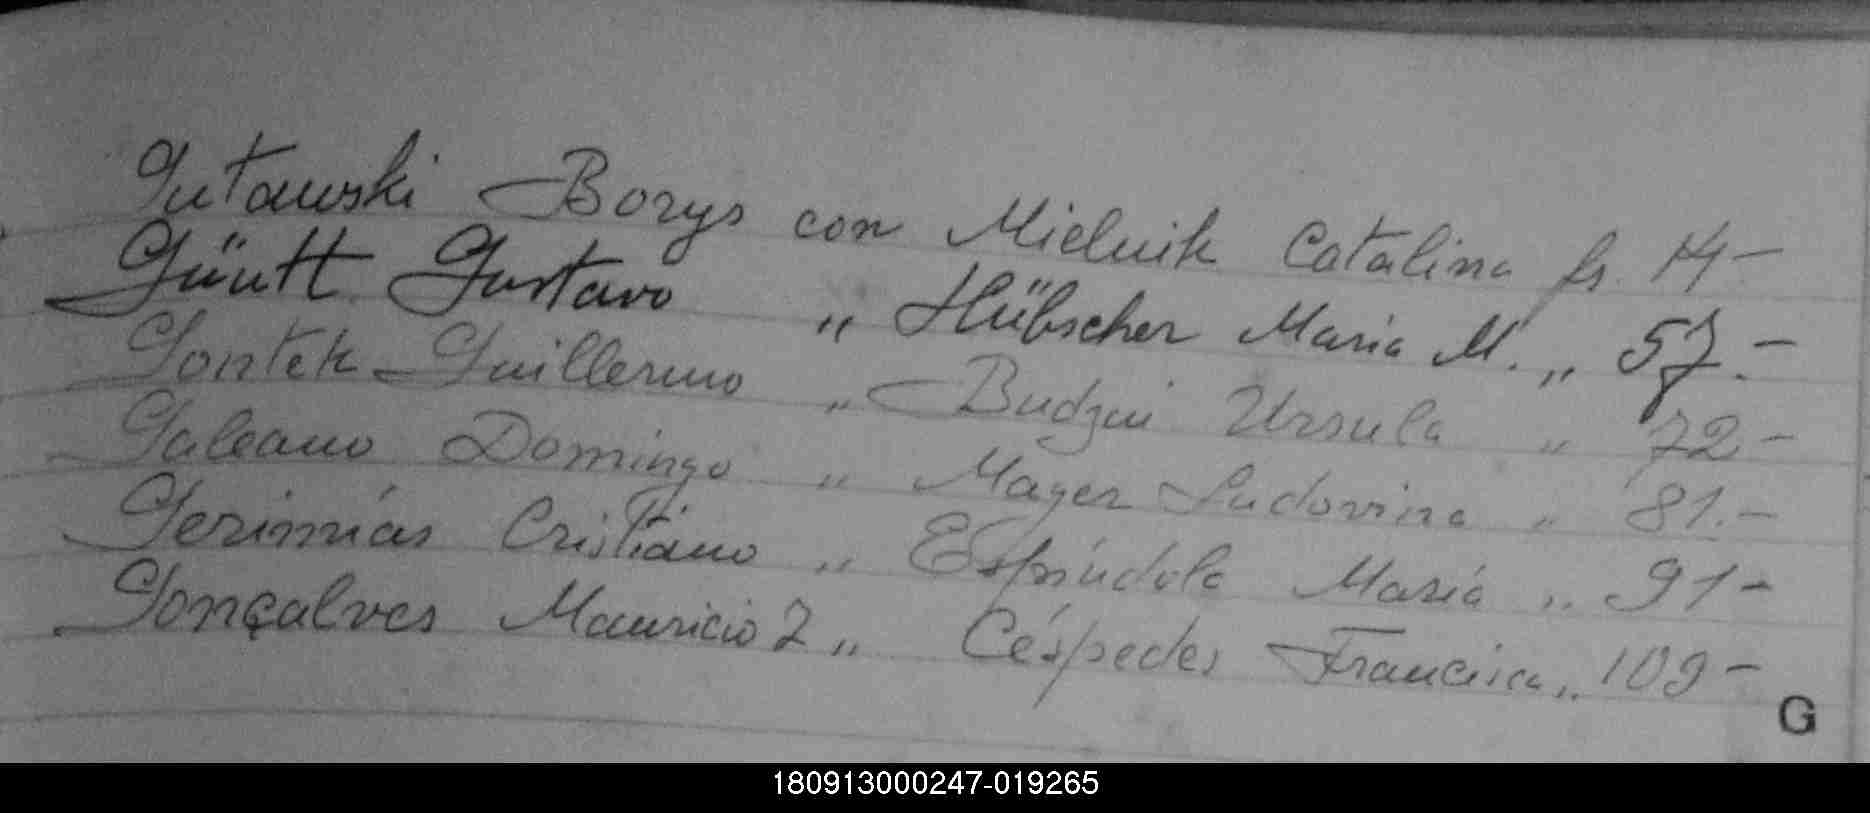 Gutowski Borys con Mielnik Catalina fs. 14-
Güntt Gustavo " Hübscher Maria M. " 57.-
Gontek Guillermo " Budzui Ursula " 72-
Galeano Domingo " Mayer Ludovina " 81.-
Gerimías Cristiano " Espíndola María " 91-
Gonçalves Mauricio Z " Céspedes Francisca " 109-
G
180913000247-019265